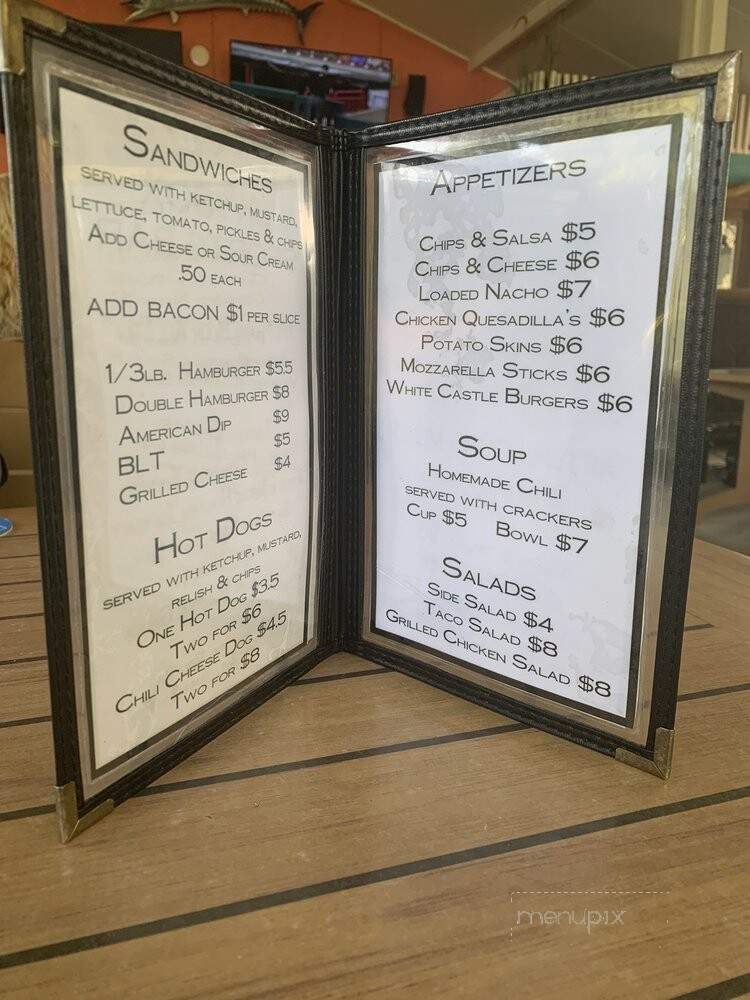 SANDWICHES
SERVED WITH KETCHUP, MUSTARD,
LETTUCE, TOMATO, PICKLES & CHIPS
ADD CHEESE OR SOUR CREAM
.50 EACH
ADD BACON $1 PER SLICE
1/3LB. HAMBURGER $5.5
DOUBLE HAMBURGER $8
AMERICAN DIP $9
BLT $5
GRILLED CHEESE $4
HOT DOGS
SERVED WITH KETCHUP, MUSTARD,
RELISH & CHIPS
ONE HOT DOG $3.5
TWO FOR $6
CHILI CHEESE DOG $4.5
TWO FOR $8
APPETIZERS
CHIPS & SALSA $5
CHIPS & CHEESE $6
LOADED NACHO $7
CHICKEN QUESADILLA'S $6
POTATO SKINS $6
MOZZARELLA STICKS $6
WHITE CASTLE BURGERS $6
SOUP
HOMEMADE CHILI
SERVED WITH CRACKERS
CUP $5 BOWL $7
SALADS
SIDE SALAD $4
TACO SALAD $8
GRILLED CHICKEN SALAD $8
menupix